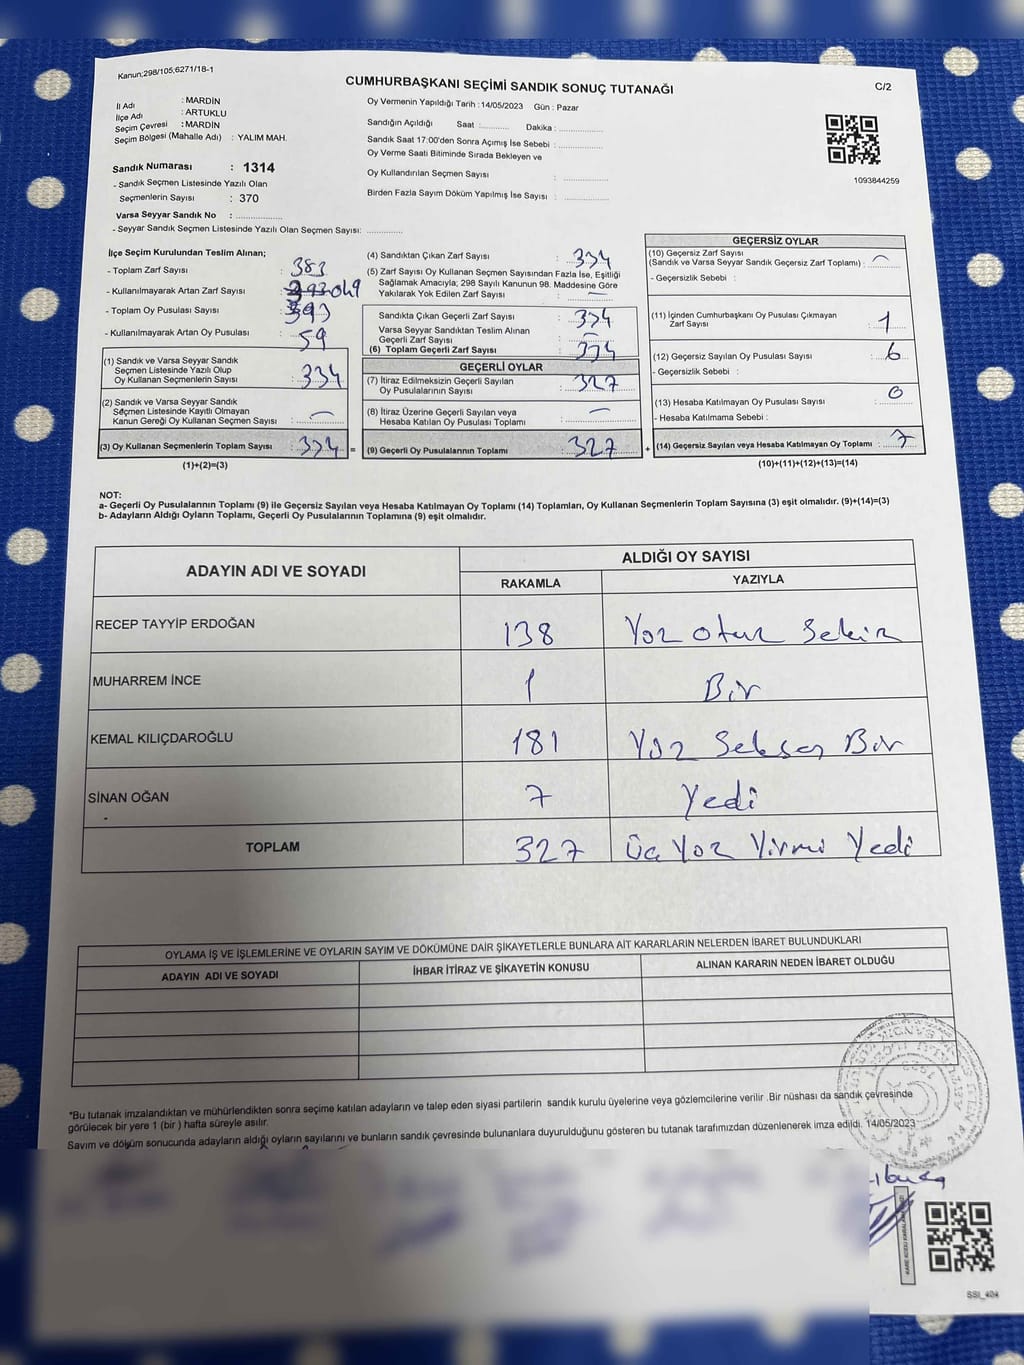 Kanun;298/105;6271/18-1
CUMHURBAŞKANI SEÇİMİ SANDIK SONUÇ TUTANAĞI
C/2
İl Adı : MARDİN
İlçe Adı : ARTUKLU
Seçim Çevresi : MARDİN
Seçim Bölgesi (Mahalle Adı) : YALIM MAH.
Sandık Numarası : 1314
- Sandık Seçmen Listesinde Yazılı Olan
Seçmenlerin Sayısı : 370
Varsa Seyyar Sandık No : ................
- Seyyar Sandık Seçmen Listesinde Yazılı Olan Seçmen Sayısı: ............
Oy Vermenin Yapıldığı Tarih : 14/05/2023 Gün : Pazar
Sandığın Açıldığı Saat :.......... Dakika : ...............
Sandık Saat 17:00'den Sonra Açımış İse Sebebi : ...............
Oy Verme Saati Bitiminde Sırada Bekleyen ve
Oy Kullandırılan Seçmen Sayısı : ...............
Birden Fazla Sayım Döküm Yapılmış İse Sayısı : ...............
1093844259
İlçe Seçim Kurulundan Teslim Alınan;
- Toplam Zarf Sayısı : 383
- Kullanılmayarak Artan Zarf Sayısı : 049
- Toplam Oy Pusulası Sayısı : 393
- Kullanılmayarak Artan Oy Pusulası : 59
(1) Sandık ve Varsa Seyyar Sandık
Seçmen Listesinde Yazılı Olup
Oy Kullanan Seçmenlerin Sayısı : 334
(2) Sandık ve Varsa Seyyar Sandık
Seçmen Listesinde Kayıtlı Olmayan
Kanun Gereği Oy Kullanan Seçmen Sayısı : —
(3) Oy Kullanan Seçmenlerin Toplam Sayısı : 334 =
(1)+(2)=(3)
(4) Sandıktan Çıkan Zarf Sayısı : 334
(5) Zarf Sayısı Oy Kullanan Seçmen Sayısından Fazla İse, Eşitliği
Sağlamak Amacıyla; 298 Sayılı Kanunun 98. Maddesine Göre
Yakılarak Yok Edilen Zarf Sayısı : —
Sandıkta Çıkan Geçerli Zarf Sayısı : 334
Varsa Seyyar Sandıktan Teslim Alınan
Geçerli Zarf Sayısı : —
(6) Toplam Geçerli Zarf Sayısı : 334
GEÇERLİ OYLAR
(7) İtiraz Edilmeksizin Geçerli Sayılan
Oy Pusulasının Sayısı : 327
(8) İtiraz Üzerine Geçerli Sayılan veya
Hesaba Katılan Oy Pusulası Toplamı : —
(9) Geçerli Oy Pusulalarının Toplamı : 327 +
GEÇERSİZ OYLAR
(10) Geçersiz Zarf Sayısı
(Sandık ve Varsa Seyyar Sandık Geçersiz Zarf Toplamı) : —
- Geçersizlik Sebebi :
(11) İçinden Cumhurbaşkanı Oy Pusulası Çıkmayan
Zarf Sayısı : 1
(12) Geçersiz Sayılan Oy Pusulası Sayısı : 6
- Geçersizlik Sebebi :
(13) Hesaba Katılmayan Oy Pusulası Sayısı : 0
- Hesaba Katılmama Sebebi :
(14) Geçersiz Sayılan veya Hesaba Katılmayan Oy Toplamı : 7
(10)+(11)+(12)+(13)=(14)
NOT:
a- Geçerli Oy Pusulalarının Toplamı (9) ile Geçersiz Sayılan veya Hesaba Katılmayan Oy Toplamı (14) Toplamları, Oy Kullanan Seçmenlerin Toplam Sayısına (3) eşit olmalıdır. (9)+(14)=(3)
b- Adayların Aldığı Oyların Toplamı, Geçerli Oy Pusulalarının Toplamına (9) eşit olmalıdır.
ADAYIN ADI VE SOYADI
ALDIĞI OY SAYISI
RAKAMLA YAZIYLA
RECEP TAYYİP ERDOĞAN 138 Yüz otuz Sekiz
MUHARREM İNCE 1 Bir
KEMAL KILIÇDAROĞLU 181 Yüz Seksen Bir
SİNAN OĞAN 7 Yedi
TOPLAM 327 Üç Yüz Yirmi Yedi
OYLAMA İŞ VE İŞLEMLERİNE VE OYLARIN SAYIM VE DÖKÜMÜNE DAİR ŞİKAYETLERLE BUNLARA AİT KARARLARIN NELERDEN İBARET BULUNDUKLARI
ADAYIN ADI VE SOYADI İHBAR İTİRAZ VE ŞİKAYETİN KONUSU ALINAN KARARIN NEDEN İBARET OLDUĞU
*Bu tutanak imzalandıktan ve mühürlendikten sonra seçime katılan adayların ve talep eden siyasi partilerin sandık kurulu üyelerine veya gözlemcilerine verilir .Bir nüshası da sandık çevresinde
görülecek bir yere 1 (bir ) hafta süreyle asılır.
Sayım ve döküm sonucunda adayların aldığı oyların sayılarını ve bunların sandık çevresinde bulunanlara duyurulduğunu gösteren bu tutanak tarafımızdan düzenlenerek imza edildi. 14/05/2023
SSI_404